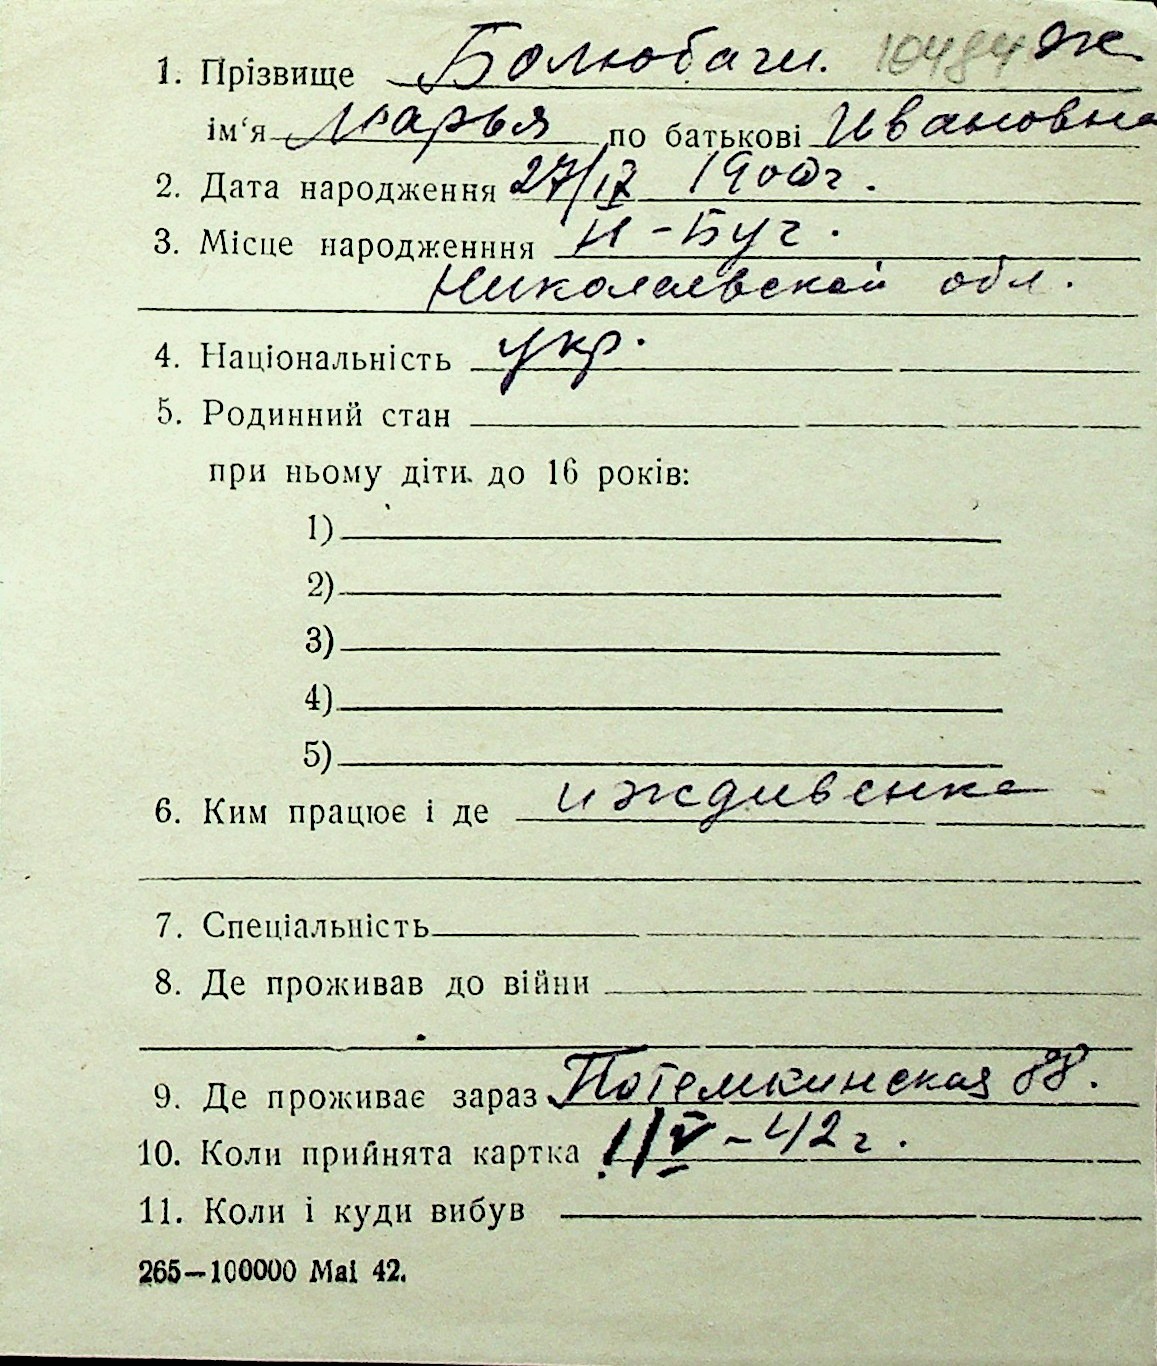 1. Прізвище Болюбачи. 10484 Ж
ім'я Марья по батькові Ивановна
2. Дата народження 27/IV 1900г.
3. Місце народженння Н-Буг.
Николаевской обл.
4. Національність укр.
5. Родинний стан
при ньому діти до 16 років:
1)
2)
3)
4)
5)
6. Ким працює і де иждивенка
7. Спеціальність
8. Де проживав до війни
9. Де проживає зараз Потемкинская 88.
10. Коли прийнята картка 1/V-42г.
11. Коли і куди вибув
265—100000 Mai 42.